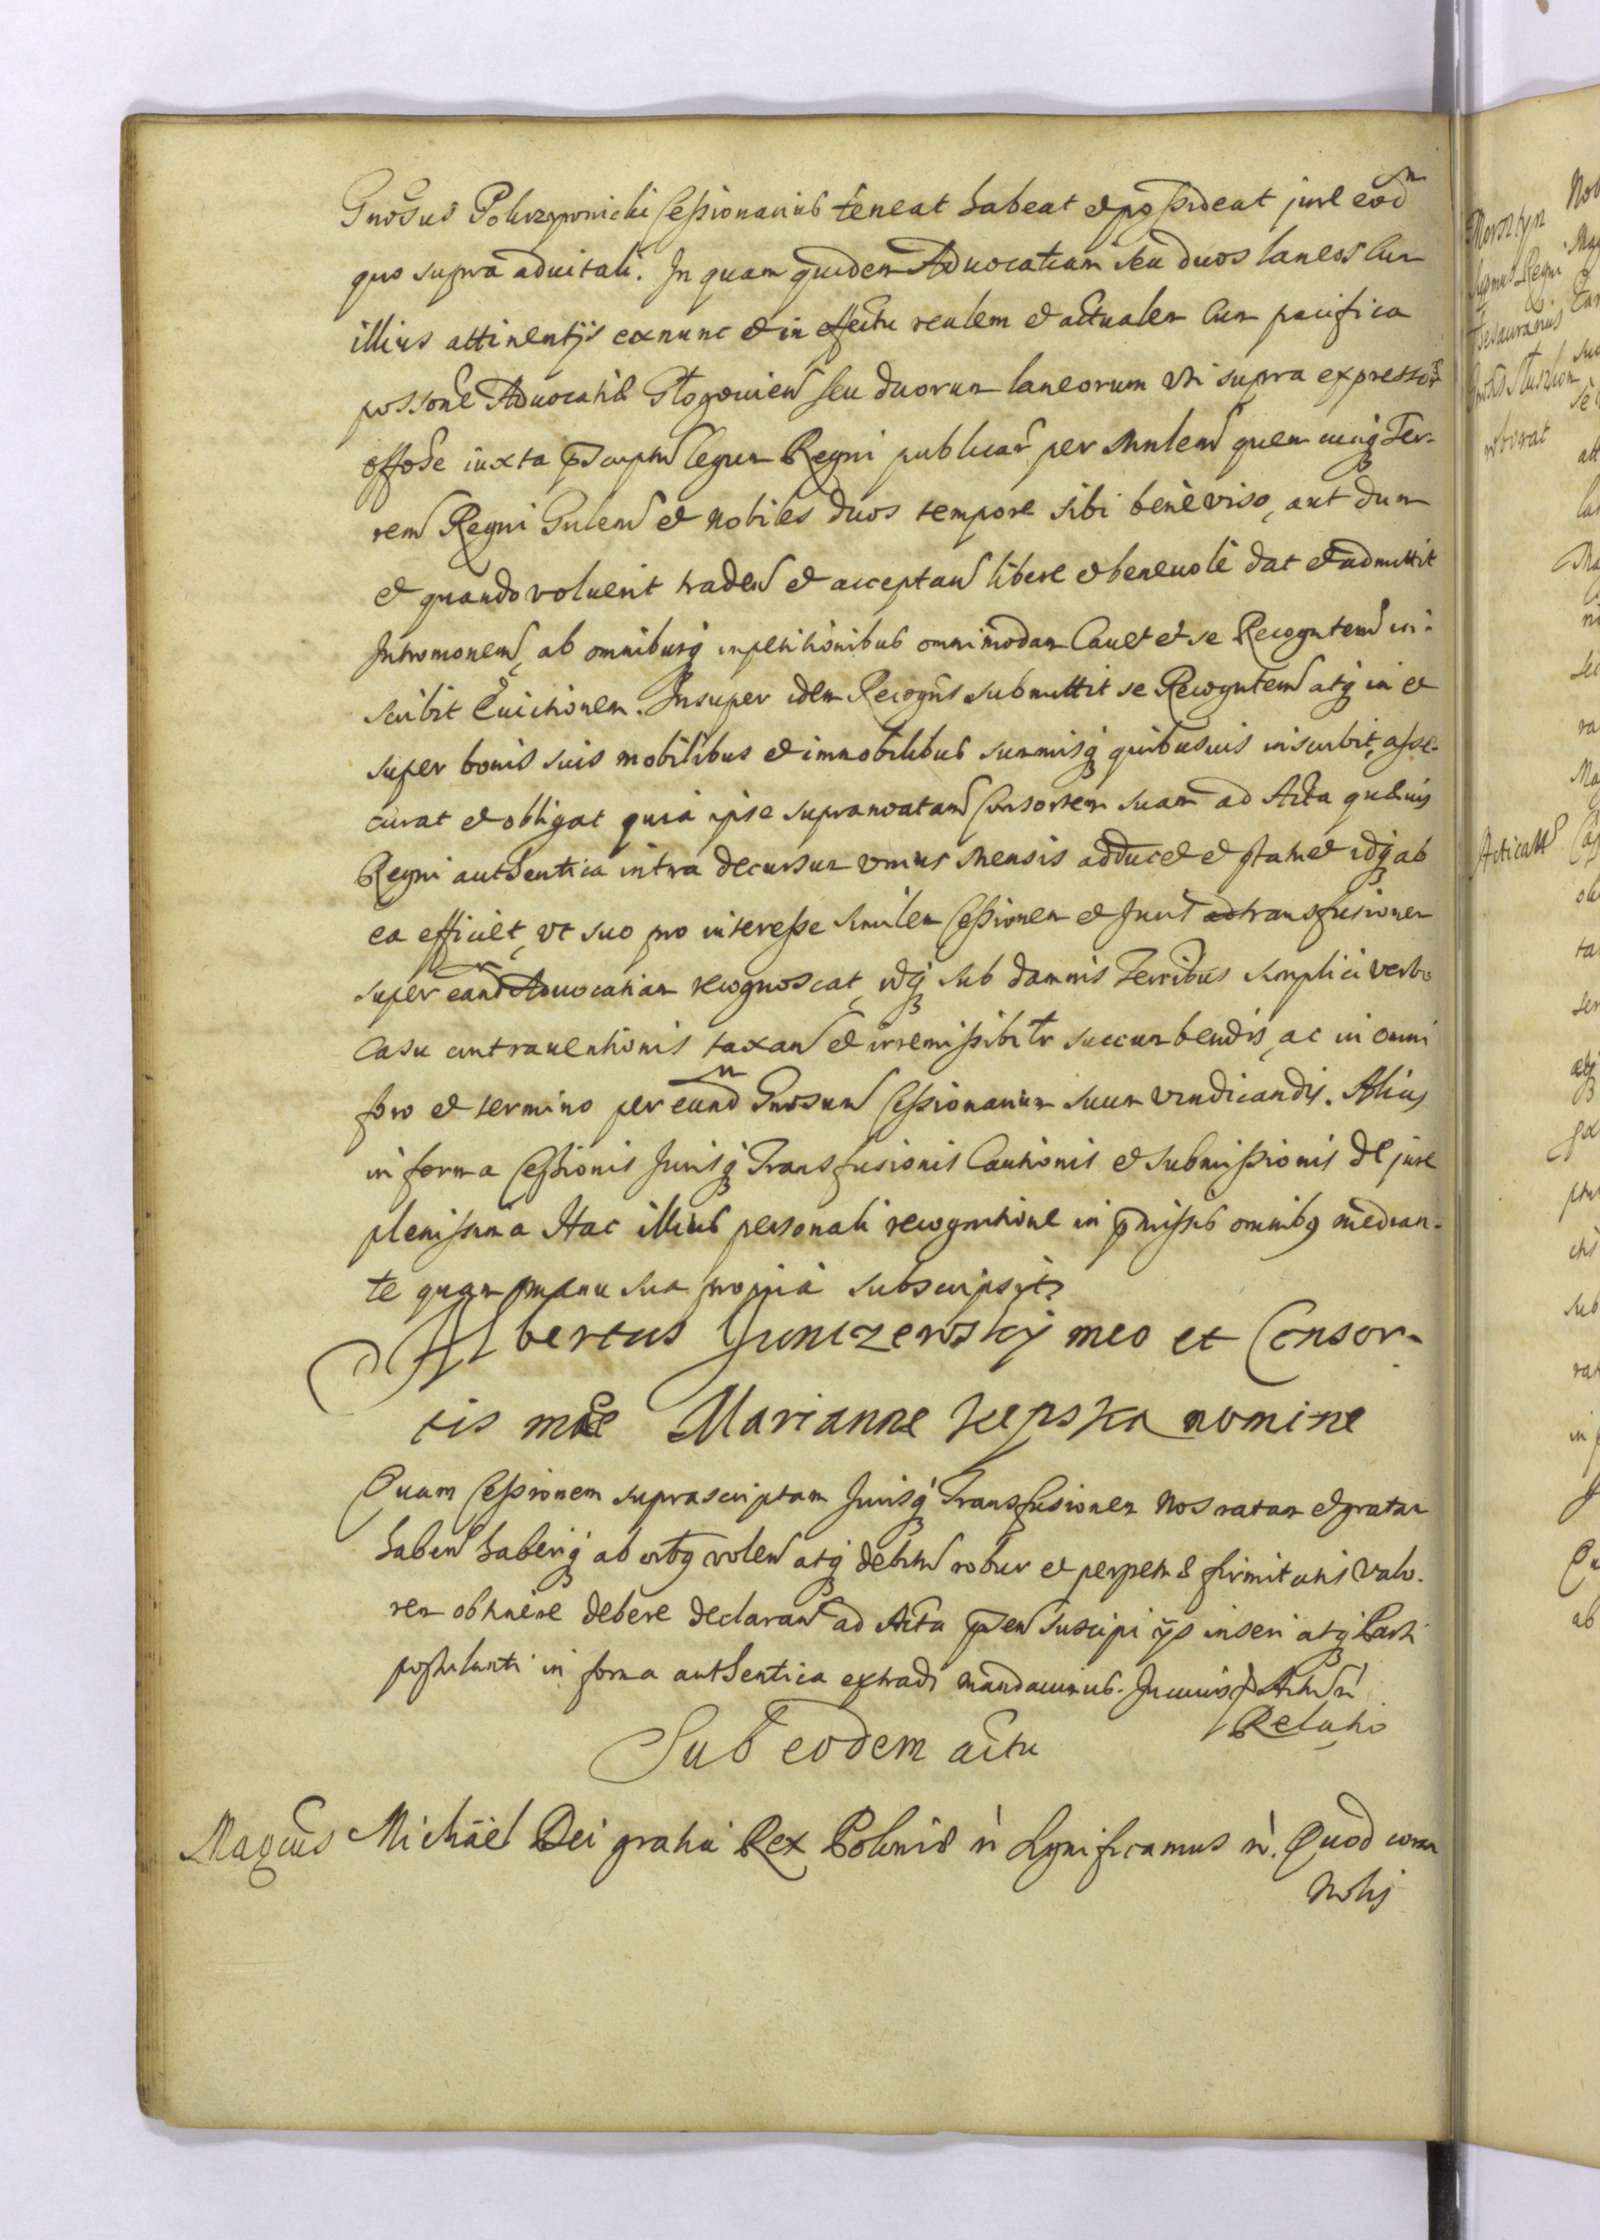 Gnosus Pokrzywnicki Cessionarius teneat habeat et possideat jure eod
quo supra aduitali. In quam quidem Aduocatiam seu duos laneos cum
illius attinentijs exnunc et in effectu realem et actualem cum pacifica
possone Aduocatiæ Głogouien seu duorum laneorum vti supra expressor
offode iuxta pscriptu legum Regni publicar per Mnlem quem cuiusq Ter-
rem Regni Gnlem et nobiles duos tempore sibi benè viso, aut dum
et quando voluerit traden et acceptan libere et beneuolè dat et admittit
Intromonem, ab omnibusq impetitionibus omnimodam Cauet et se Recogntem in-
scribit Euictionem. Insuper idem Recogns submittit se Recogntem atq in et
super bonis suis mobilibus et immobilibus summisq quibusuis inscribit, asse-
curat et obligat quia ipse supranoatam Consortem suam ad Acta quæuis
Regni authentica intra decursum vnius Mensis adducet et statuet idq ab
ea efficiet, vt suo pro interesse similem Cessionem et Juris ad transfusionem
super eand Aduocatiam recognoscat, idq sub damnis Terribus simplici verbo
Casu contrauentionis taxan et irremissibilr succumbendis, ac in omni
foro et termino per eund Gnosum Cessionarium suum vindicandis. Alius
in forma Cessionis Jurisq Transfusionis Cautionis et submissionis de jure
plenissima Hac illius personali recognitione in pmissis omnibq median-
te quam manu sua propria subscripsit
Albertus Junczewsky meo et Consor-
tis meæ Marianne Kępska nomine
Quam Cessionem suprascriptam Jurisq Transfusionem Nos ratam et gratam
haben haberiq ab omnbq volen atq debitu robur et perpetuæ firmitatis valo-
rem obtinere debere declaran ad Acta psen suscipi ijs inseri atq Parti
postulanti in forma authentica extradi mandauimus. In cuius
Relatio
Sub eodem actu
Michäel Dei gratia Rex Poloniæ Significamus Quod coram
Nobis